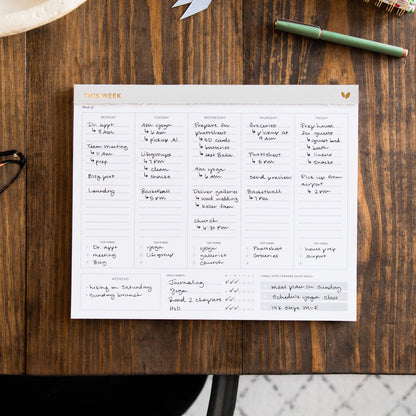 THIS WEEK
MONDAY
Dr. appt
↳ 8 AM
Team meeting
↳ 11 AM
↳ prep
Blog post
Laundry
TOP THREE
Dr. appt
meeting
Blog
TUESDAY
Am yoga
↳ 6 AM
↳ pickup Al
Lifegroups
↳ 7 PM
↳ clean
↳ snacks
Basketball
↳ 5 PM
TOP THREE
yoga
Lifegroup
WEDNESDAY
Prepare for
photshoot
↳ SD cards
↳ batteries
Am yoga
↳ 6 AM
Deliver galleries
↳ wood wedding
↳ Keller fam
Church
↳ 6:30 PM
TOP THREE
yoga
galleries
church
THURSDAY
Groceries
↳ pickup at
9 AM
Photshoot
↳ 5 PM
Send previews
Basketball
↳ 7 PM
TOP THREE
Photshoot
Groceries
FRIDAY
Prep house
for guests
↳ guest bed
↳ bath
↳ linens
↳ snacks
Pick up from
airport
↳ 2 PM
TOP THREE
house prep
airport
WEEKEND
- hiking on Saturday
- Sunday brunch
Journaling
Yoga
Read 2 chapters
H2O
meal plan on Sunday
Schedule yoga class
10k steps M-F